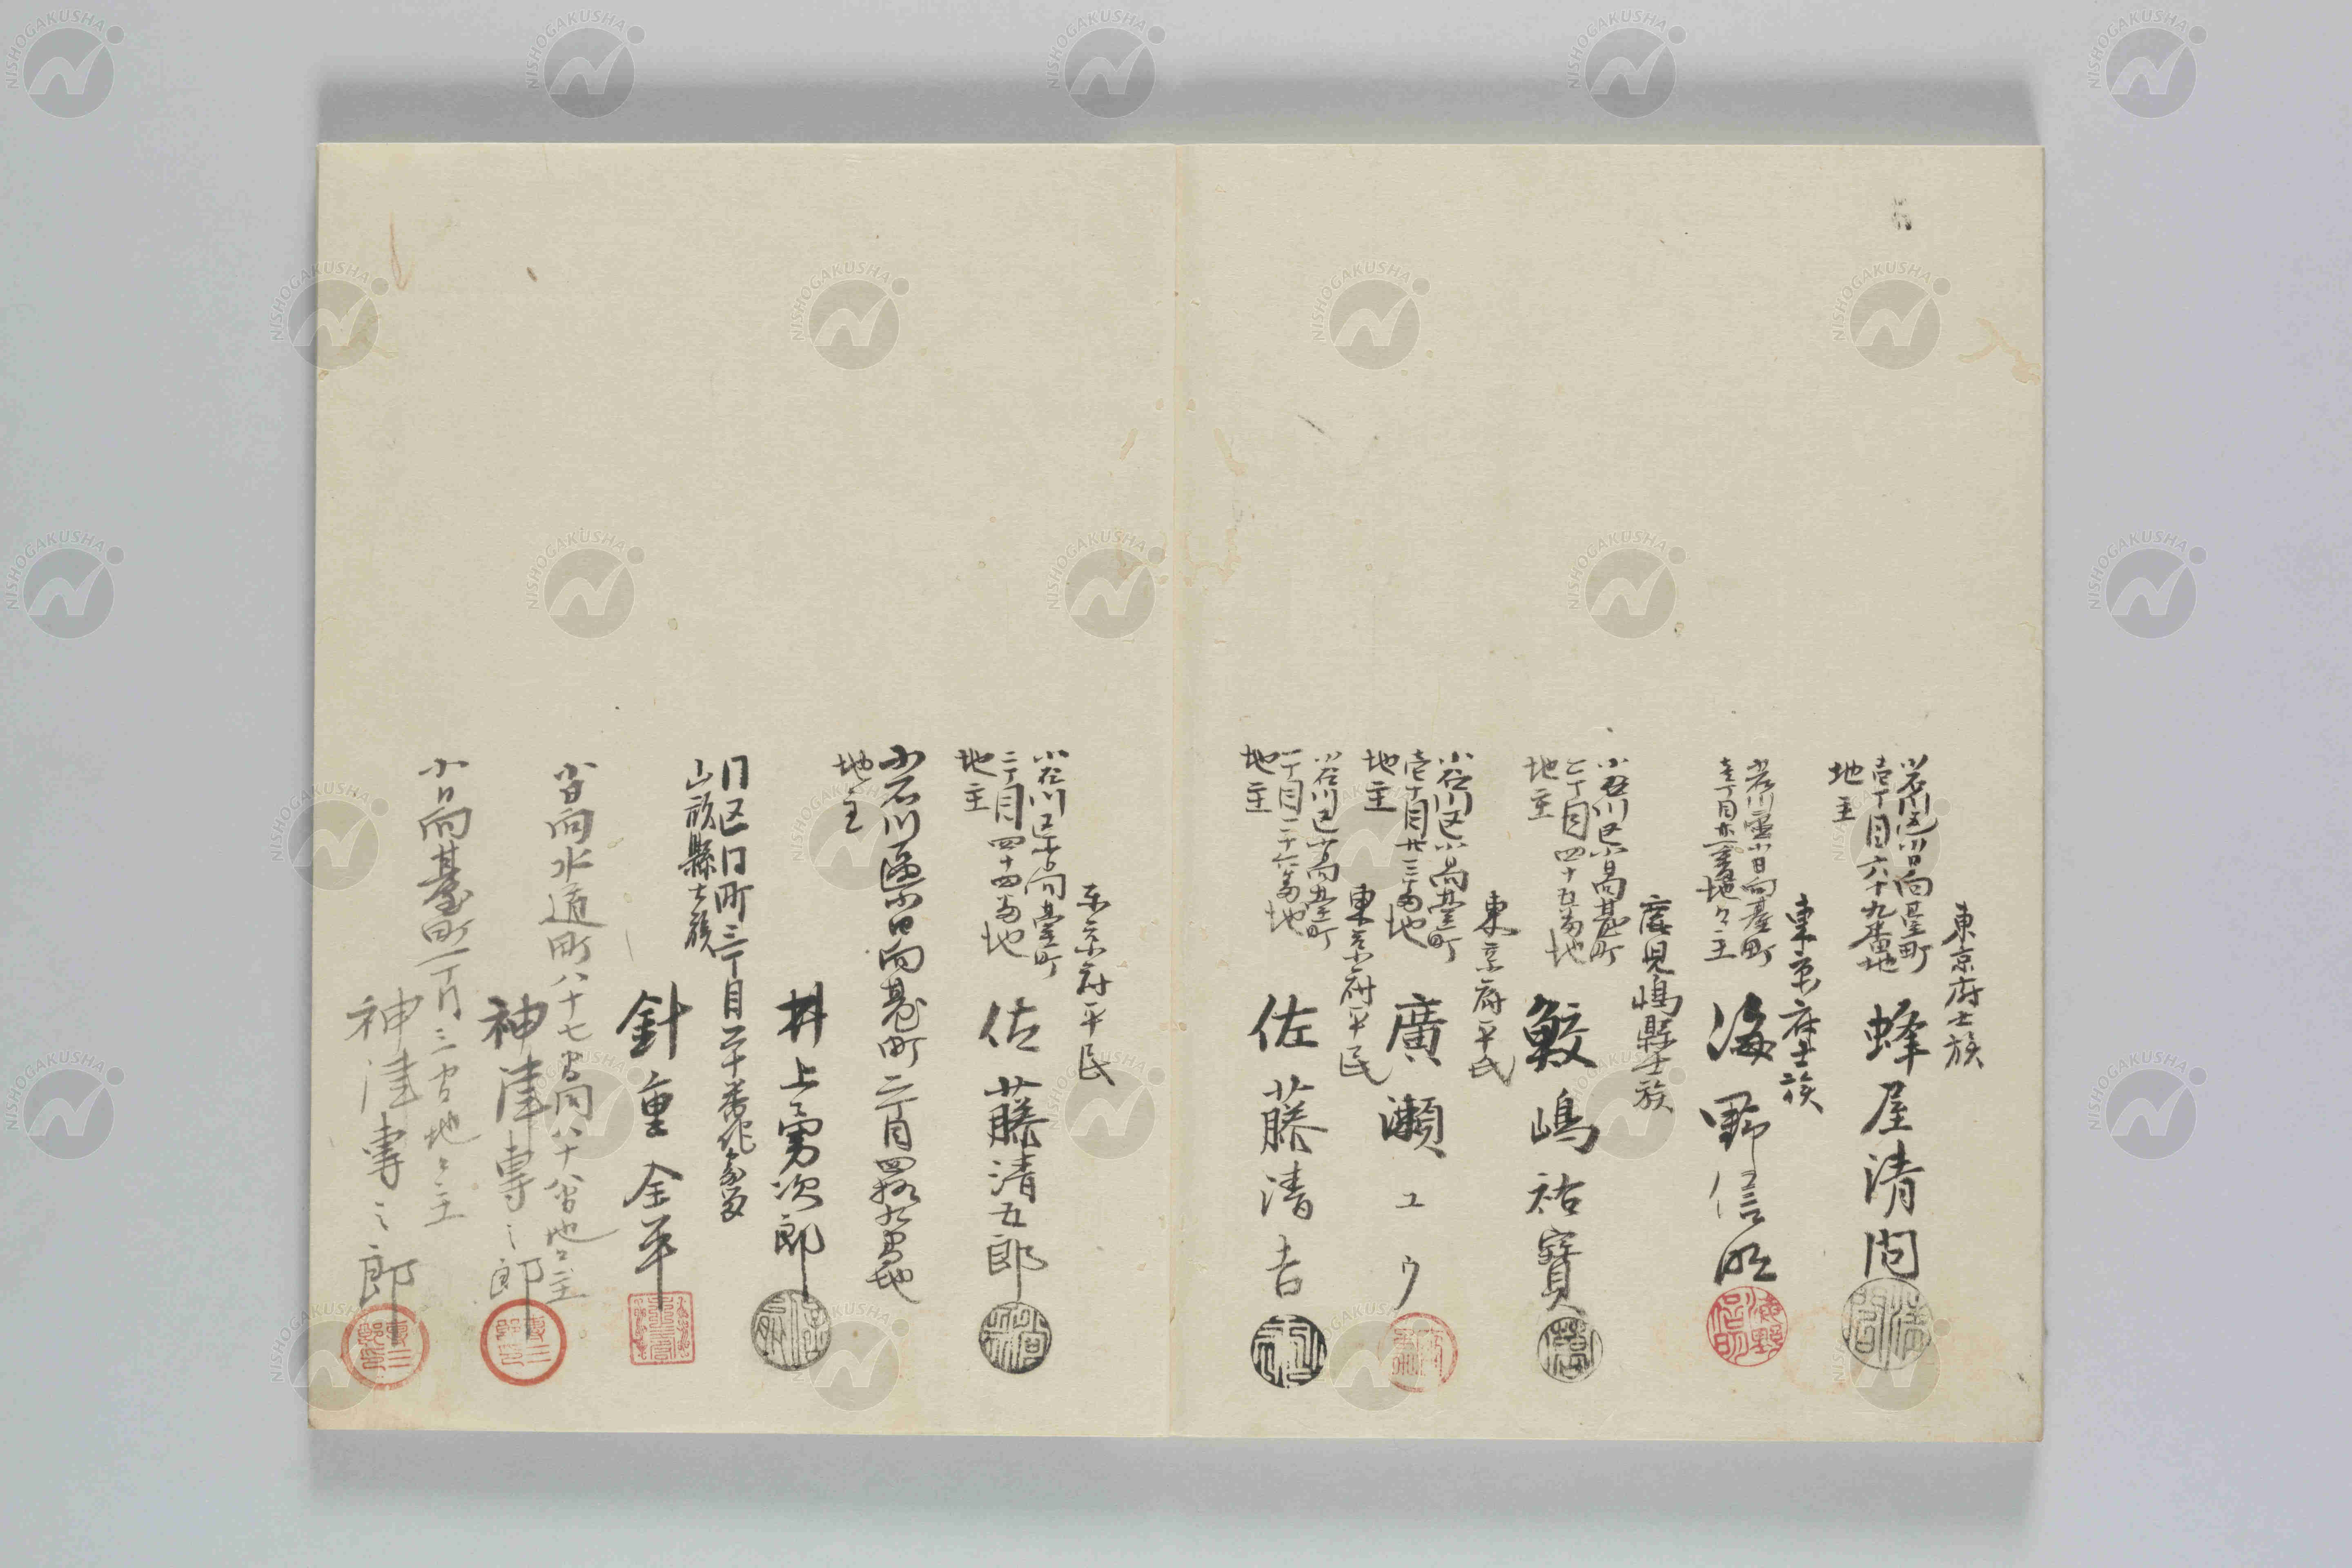 東京府士族
小石川区小日向臺町
壱丁目六十九番地
地主
蜂屋清問
東京府士族
小石川區小日向臺町
海野信明
鹿児嶋縣士族
小石川区小日向臺町
二丁目四十五番地
地主
鮫嶋祐寶
東京府平民
小石川区小日向臺町
壱丁目廿三番地
地主
廣瀬ユウ
東京府平民
小石川区小日向臺町
一丁目二十六番地
地主
佐藤清吉
東京府平民
小石川区小日向臺町
二丁目四十四番地
地主
佐藤清五郎
小石川區小日向臺町二丁目四拾九番地
地主
井上勇次郎
同区同町三丁目二十番地
縣士族
針重金平
小日向水道町八十七番同八十八番地々主
神津専之郎
小日向臺町一丁目三番地々主
神津専之郎
NISHOGAKUSHA